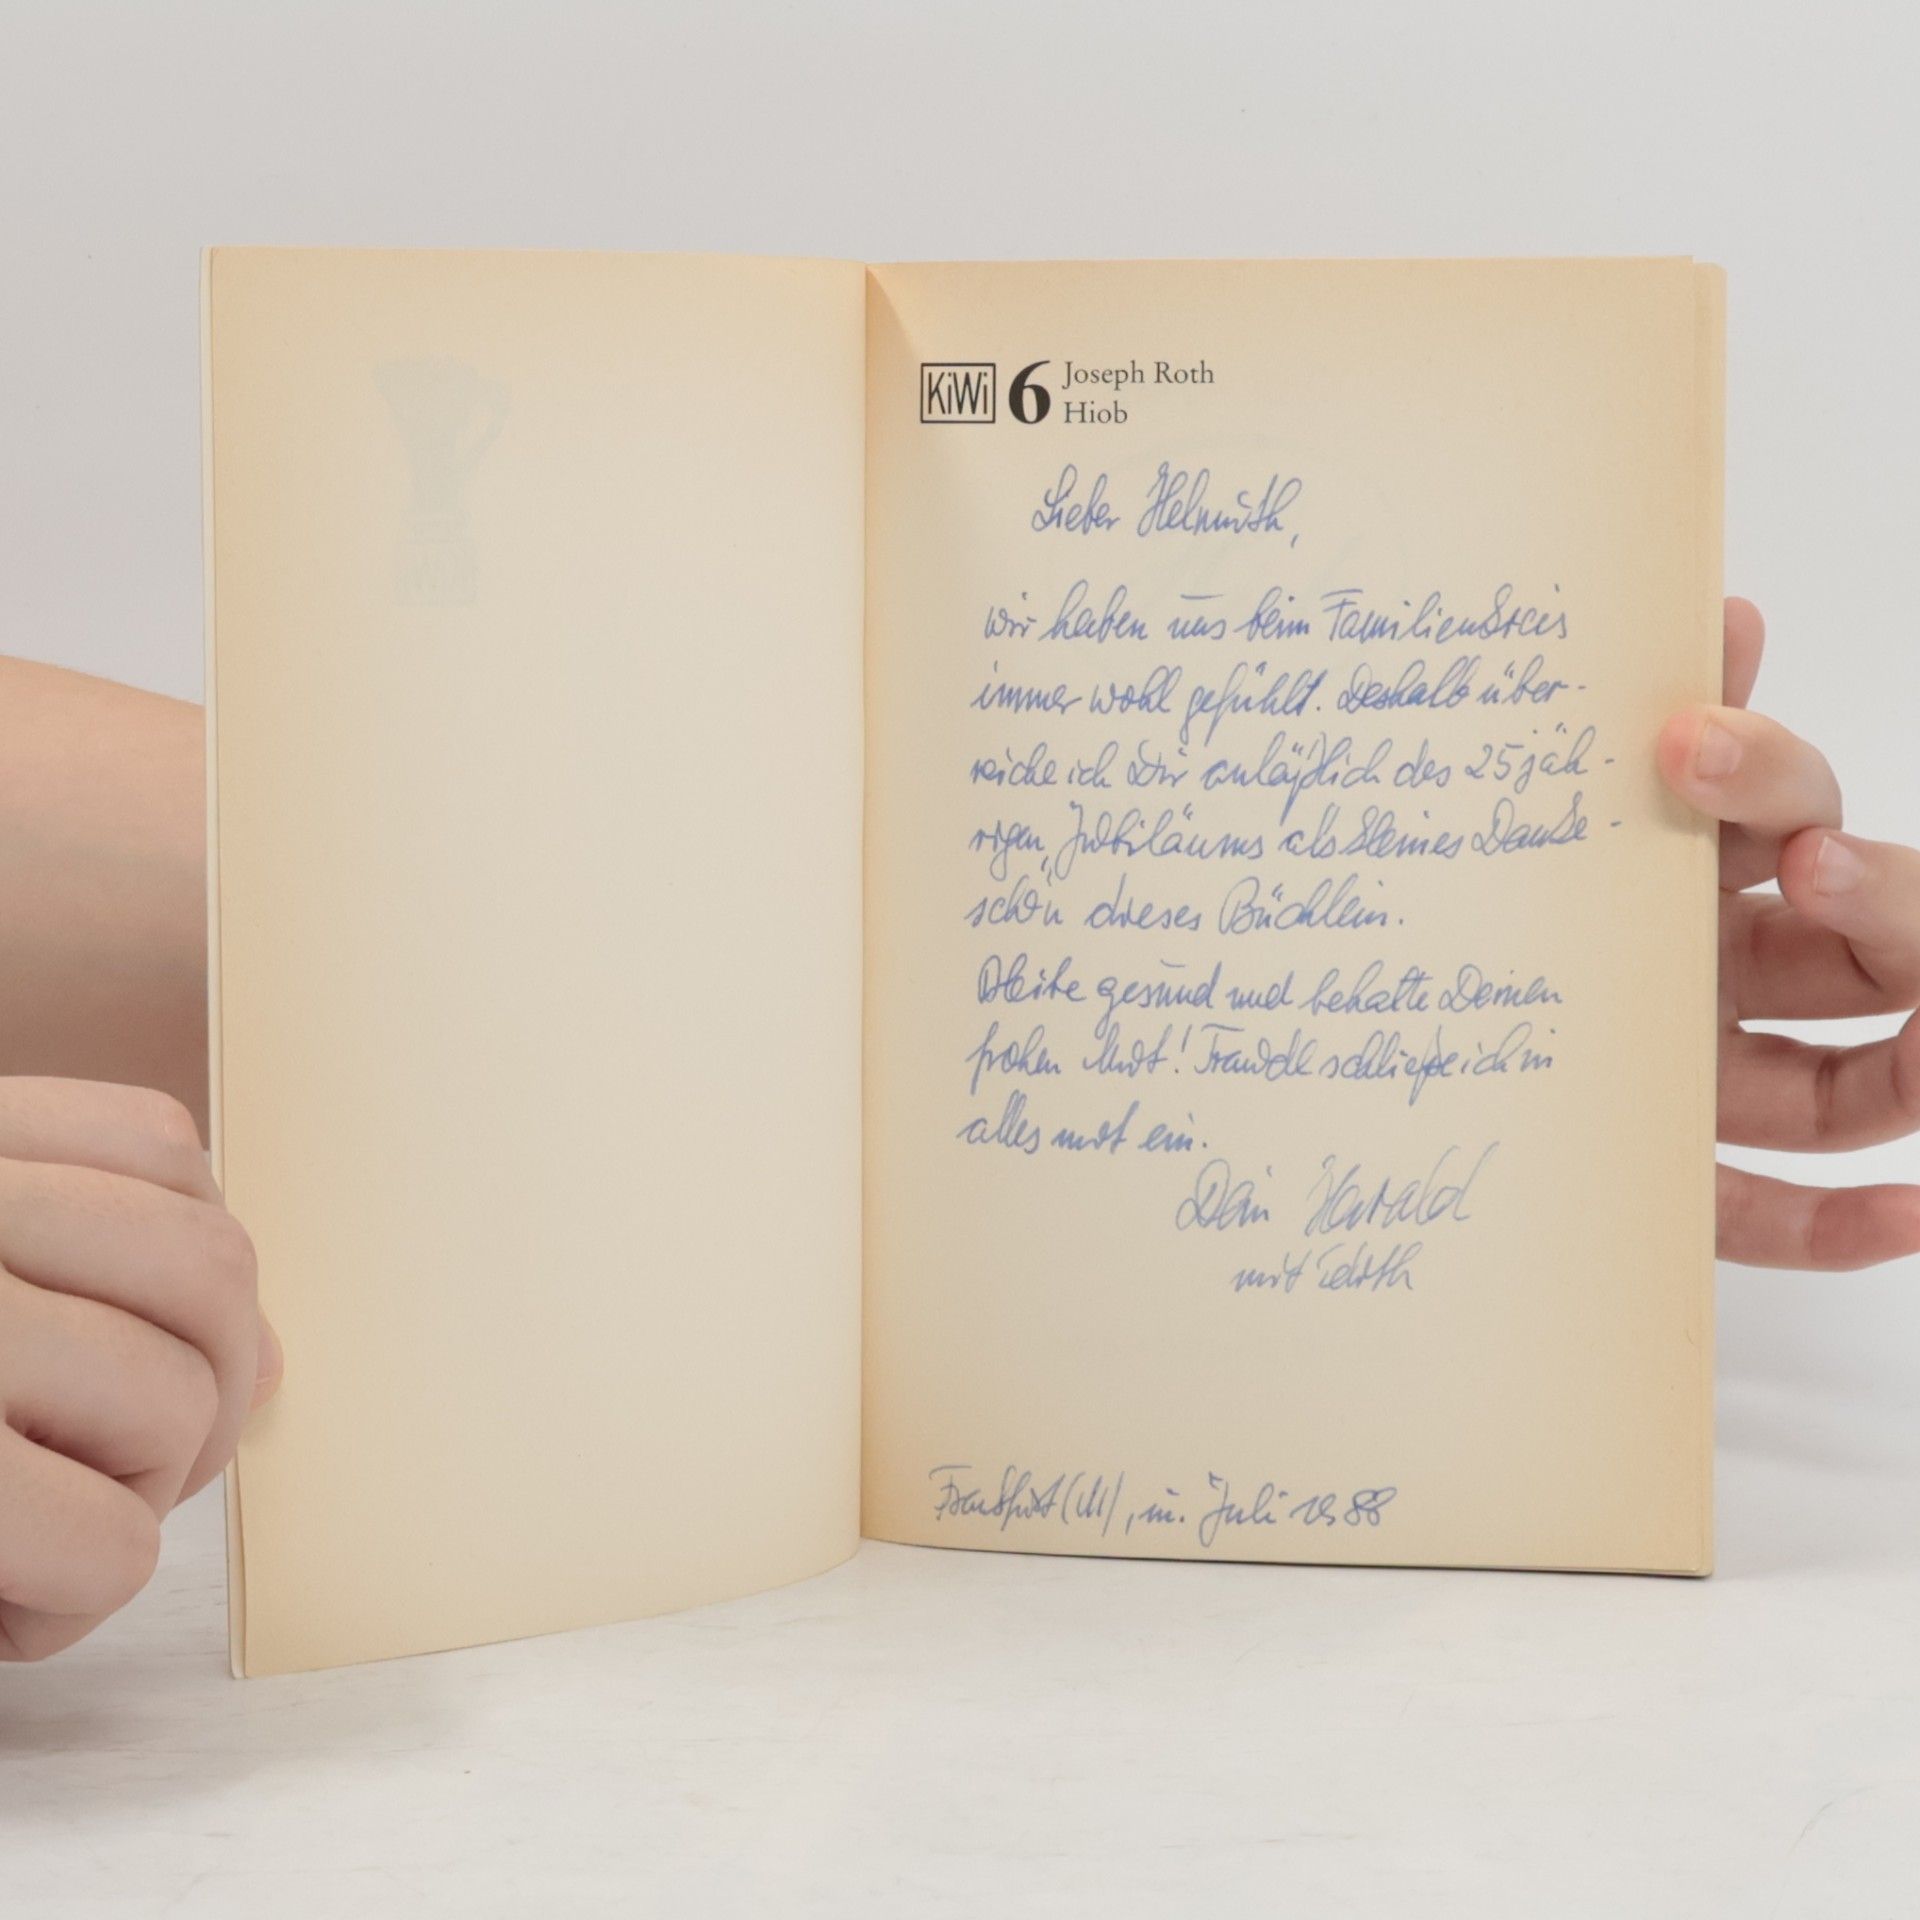 KiWi 6 Joseph Roth
Hiob
Lieber Helmuth,
wir haben uns beim Familienkreis
immer wohl gefühlt. Deshalb über-
reiche ich Dir anläßlich des 25jäh-
rigen „Jubiläums als kleines Danke-
schön“ dieses Büchlein.
Bleibe gesund und behalte Deinen
frohen Mut! Traudl schließe ich in
alles mit ein.
Dein Harald
mit Edith
Frankfurt (M), im Juli 1988